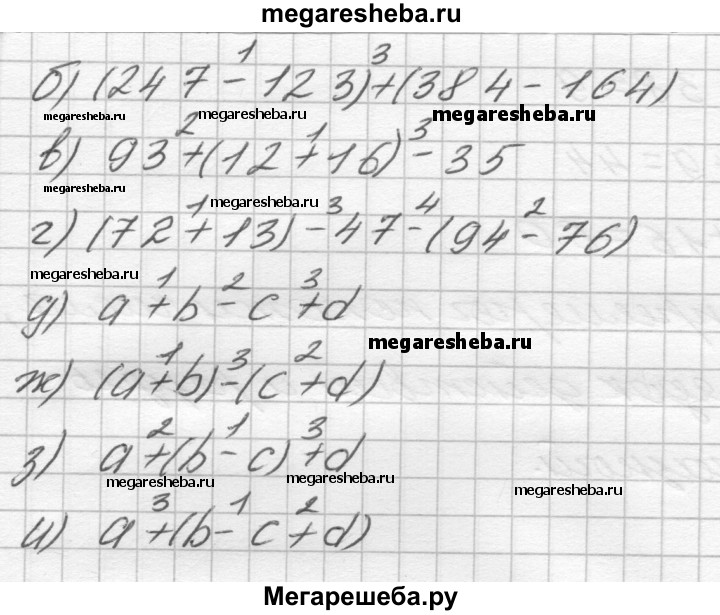 megaresheba.ru
1 3
б) (247 - 123) + (384 - 164)
megaresheba.ru megaresheba.ru megaresheba.ru
2 1 3
в) 93 + (12 + 16) - 35
megaresheba.ru
1 megaresheba.ru 3 4 2
г) (72 + 13) - 47 - (94 - 76)
megaresheba.ru
1 2 3
д) a + b - c + d
megaresheba.ru
1 3 2
ж) (a + b) - (c + d)
2 1 3
з) a + (b - c) + d
megaresheba.ru megaresheba.ru megaresheba.ru
3 1 2
и) a + (b - c + d)
Мегарешеба.ру